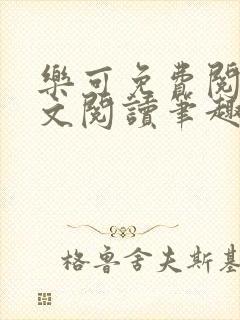 樂可免費閱
文閱讀筆趣
格魯舍夫斯基